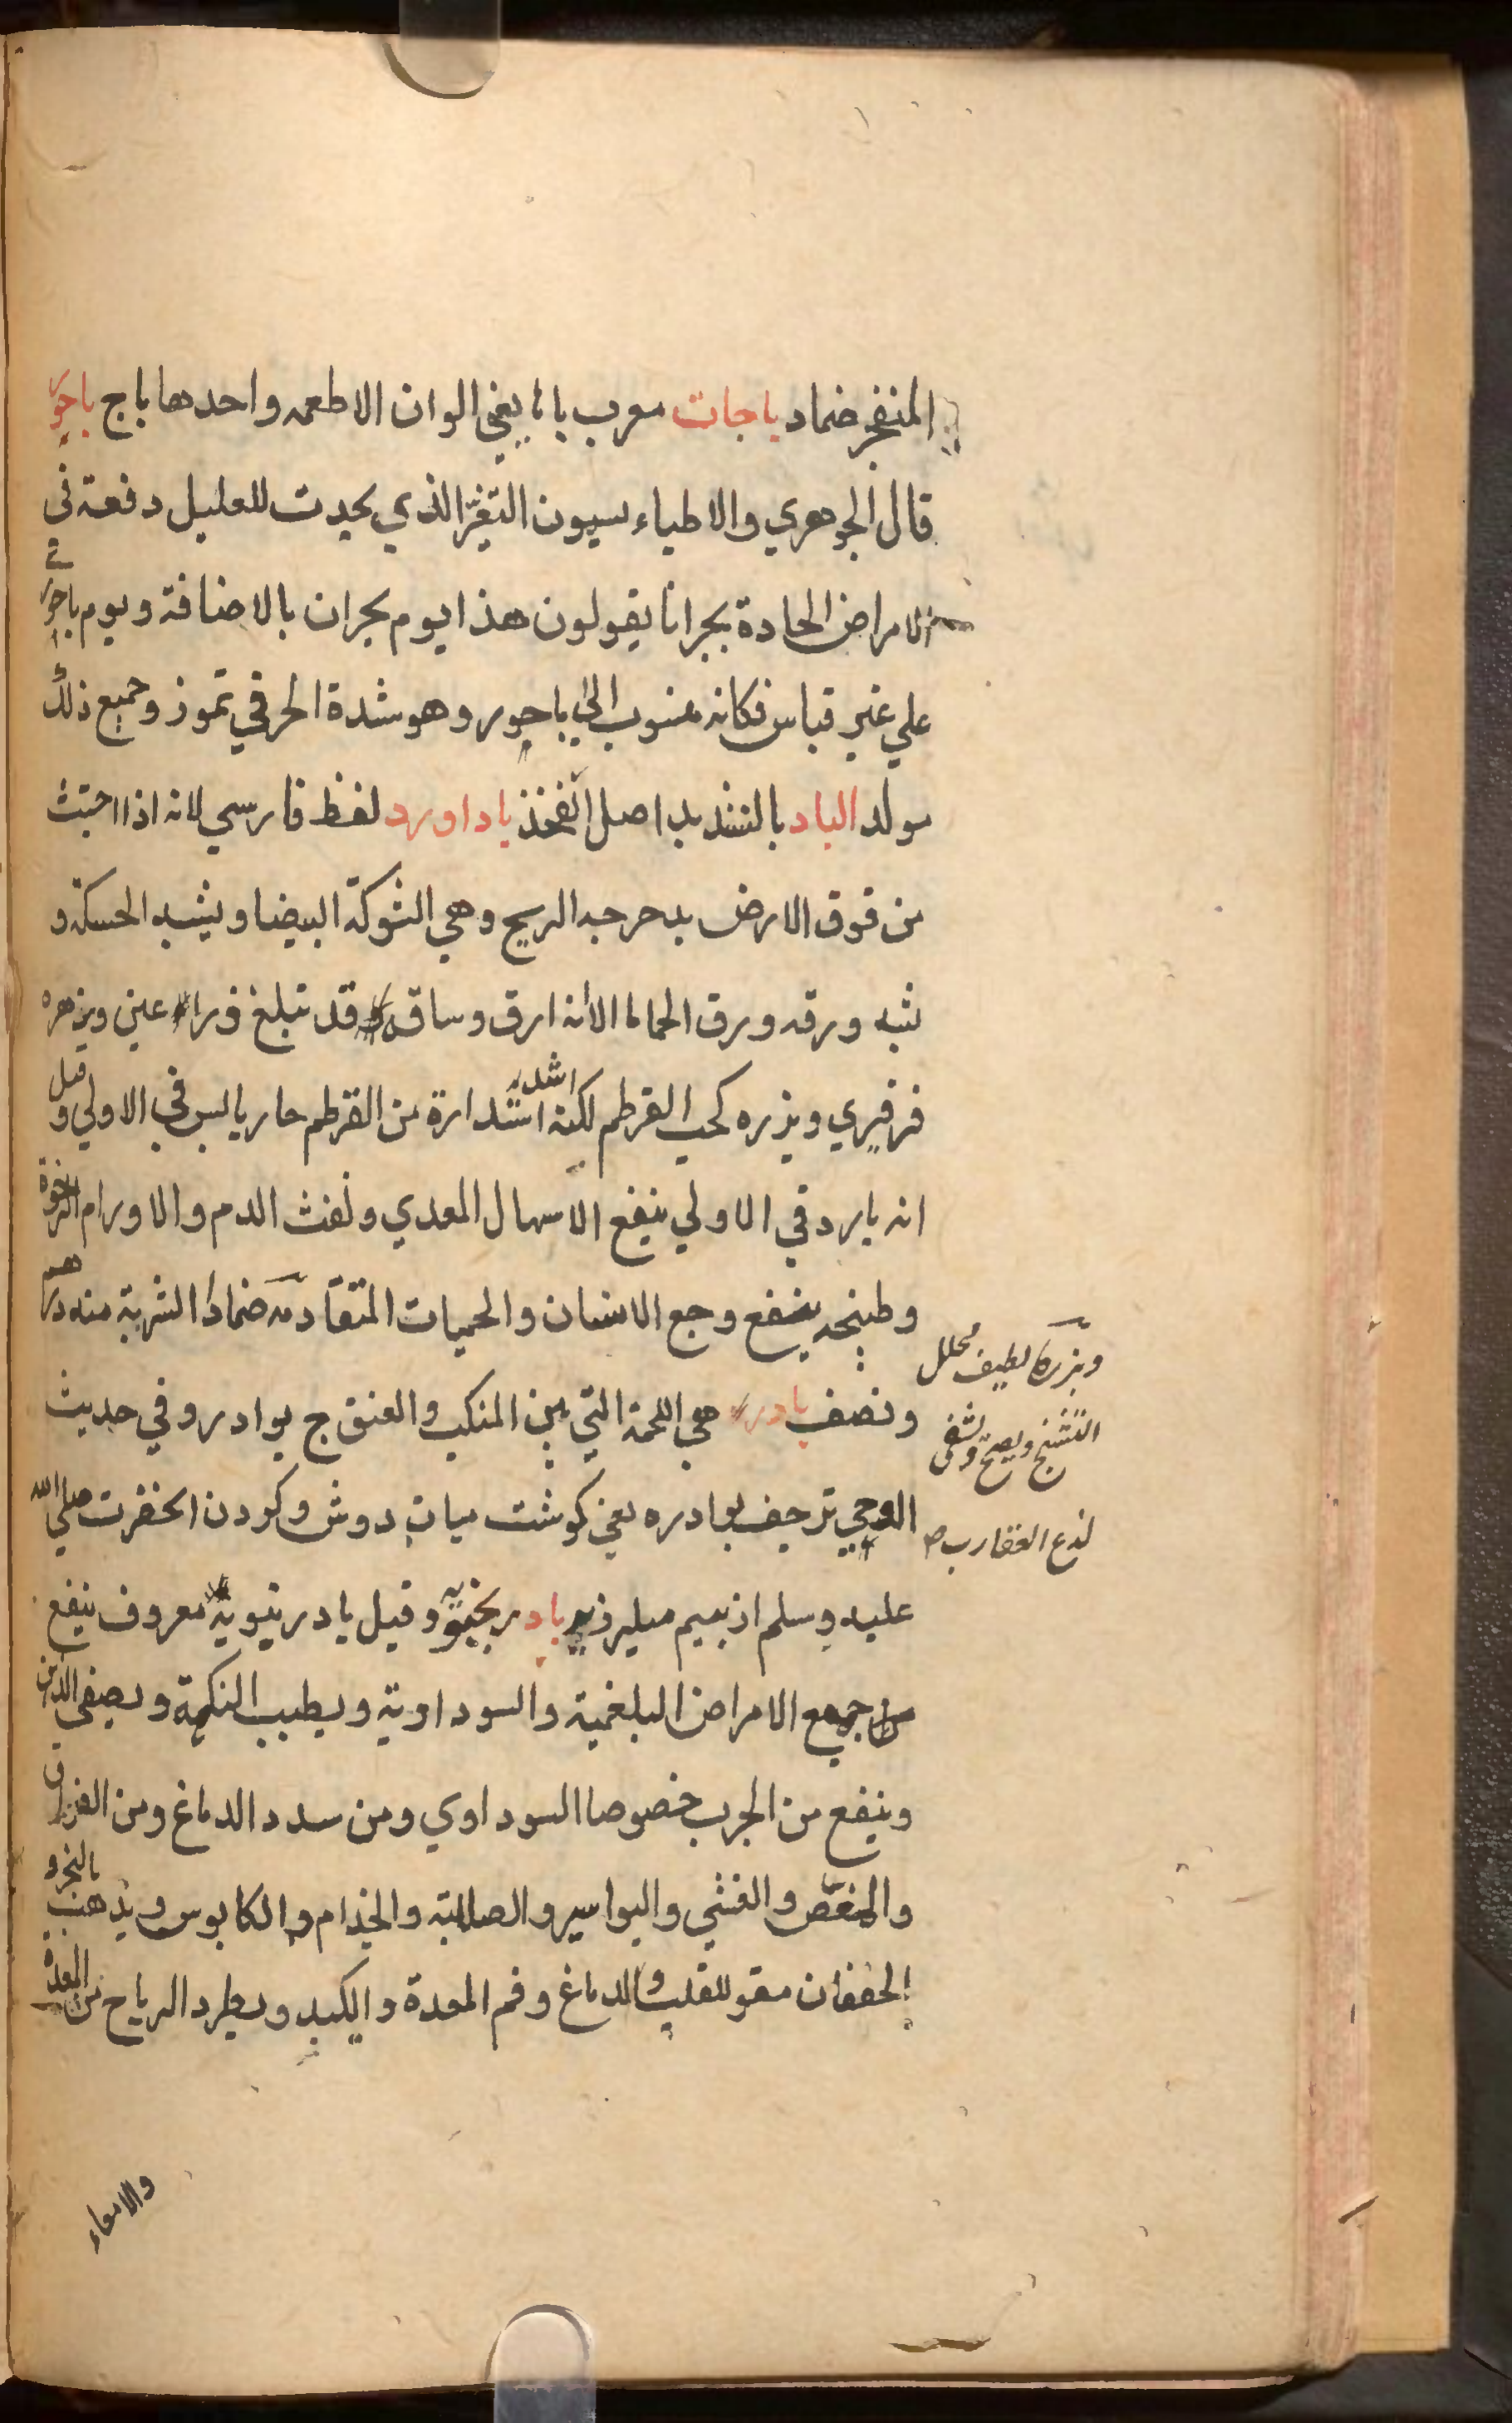 المنفجر ضمادا باجات معرب باها يعني الوان الاطعمه واحدها باج باحور
قال الجوهري والاطباء يسمون التغير الذي يحدث للعليل دفعة في
الامراض الحادة بحرانا يقولون هذا يوم بحران بالاضافة ويوم باحوري
علي غير قياس فكانه منسوب الي باحور وهو شدة الحر في تموز وجميع ذلك
مولد الباد بالتشديد اصل الفخذ باداورد لفظ فارسي لانه اذا اجتث
من فوق الارض يدحرجه الريح وهي الشوكة البيضا ويشبه الحسكة و
يشبه ورقه ورق الحماما الا انه ارق وساقه قد تبلغ ذراعين وزهره
فرفيري وبزره كحب القرطم لكنه اشد استدارة من القرطم حار يابس في الاولي وقيل
انه بارد في الاولي ينفع الاسهال المعدي ونفث الدم والاورام الرخوة
وطبخه ينفع وجع الاسنان والحميات المتقادمه ضمادا الشربة منه درهم
ونصف بادره هي اللحمة التي بين المنكب والعنق ج بوادر وفي حديث
الوحي ترجف بوادره يعني كوشت ميان دوش وكردن الحضرت صلي الله
عليه وسلم از بيم ميلرزيد بادرنجبويه وقيل بادرنبويه معروف ينفع
من جميع الامراض البلغمية والسوداوية ويطيب النكهة ويصفي الذهن
وينفع من الجرب خصوصا السوداوي ومن سدد الدماغ ومن الفواق
والمغص والغثي والبواسير والصلابة والجذام والكابوس ويذهب بالبخر و
الخفقان مقو للقلب والدماغ وفم المعدة والكبد ويطرد الرياح من المعدة
والامعاء
وبزره لطيف محلل
التشنج ويصح ويشفي
لدغ العقارب صح